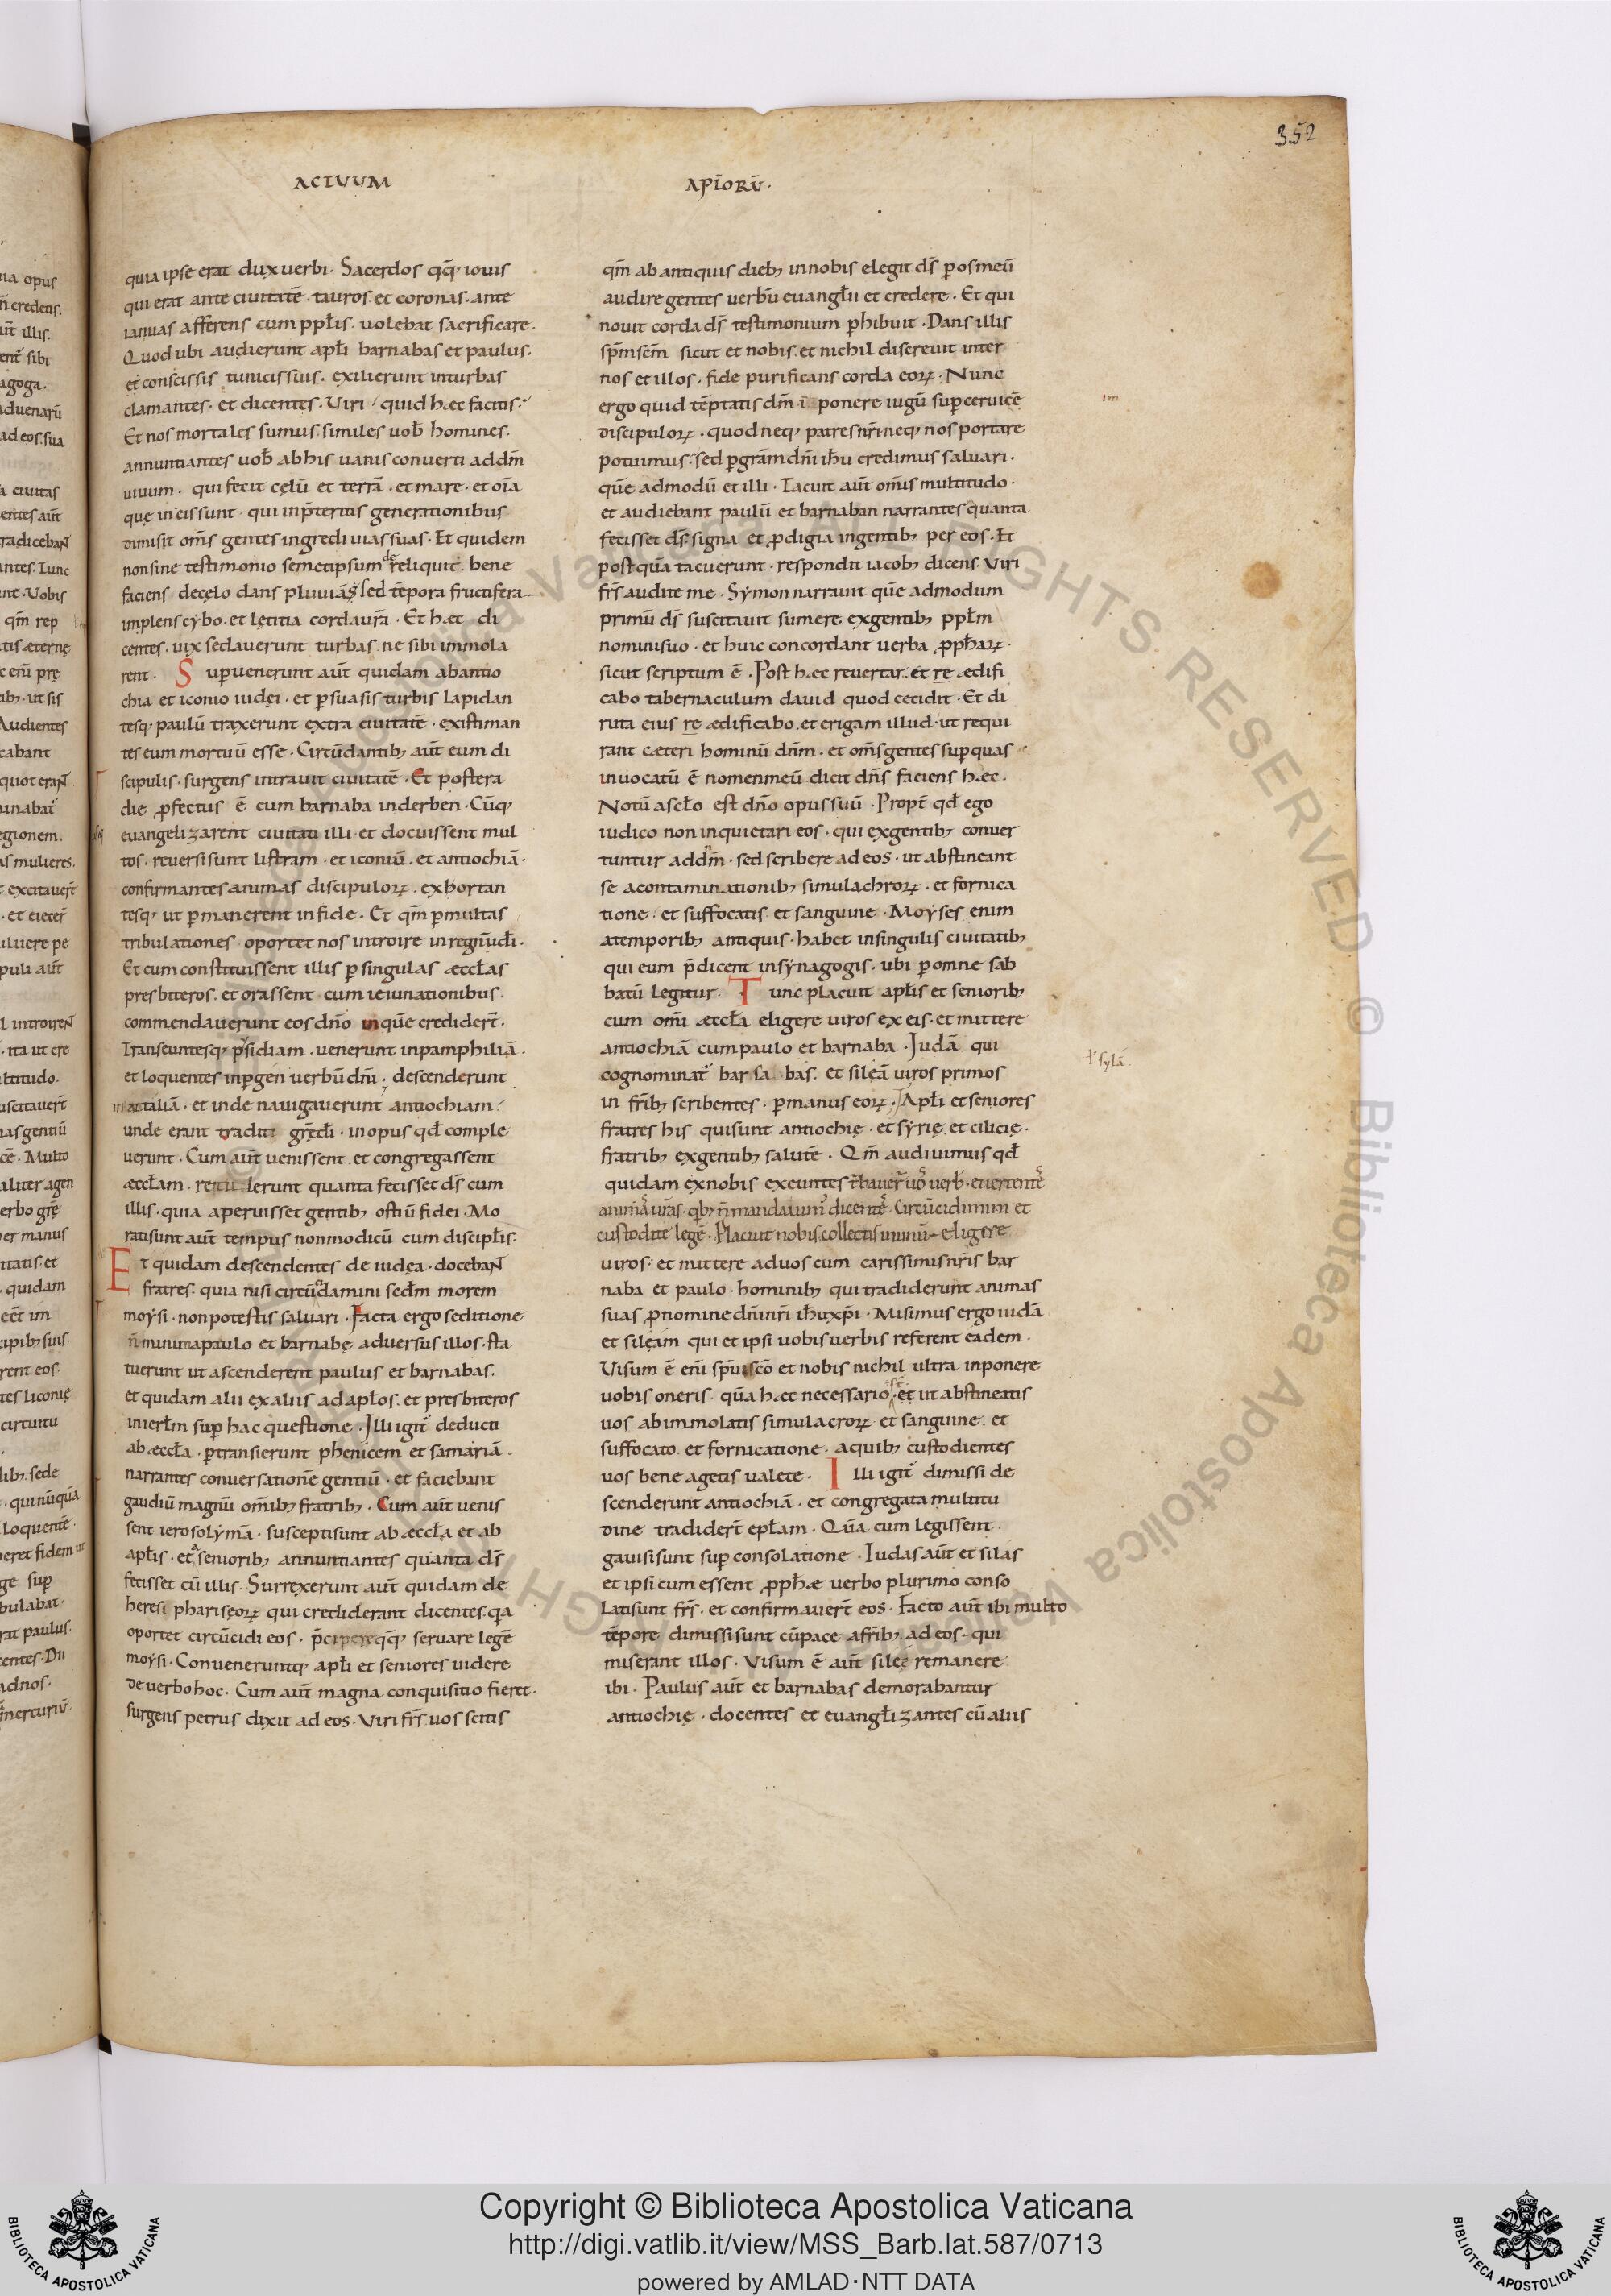 352
ACTUUM
APĪORŪ·
quia ipse erat dux uerbi· Sacerdos qq̄; iouis
qui erat ante ciuitatē· tauros et coronas· ante
ianuas afferens cum ppłis· uolebat sacrificare·
Quod ubi audierunt apłi barnabas et paulus·
et conscissis tunicis suis· exilierunt inturbas
clamantes· et dicentes· Uiri· quid hæc facitis·
Et nos mortales sumus· similes uob̄ homines·
annuntiantes uob̄ abhis uanis conuerti addm̄
uiuum· qui fecit cęlū et terrā· et mare· et oīa
quę in eis sunt· qui inp̄teritis generationibus
dimisit om̄s gentes ingredi uias suas· Et quidem
nonsine testimonio semetipsum de reliquit· bene
faciens decęlo dans pluuiās et tēpora fructifera
implens cybo· et lętitia corda ur̄a· Et hæc di
centes· uix sedauerunt turbas ne sibi immola
rent· Supuenerunt aūt quidam abantio
chia et iconio iudęi· et p̱suasis turbis lapidan
tesq; paulū traxerunt extra ciuitatē· existiman
tes eum mortuū esse· Circūdantib; aūt eum di
scipulis· surgens intrauit ciuitatē· Et postera
die p̱fectus ē cum barnaba inderben· Cūq;
euangelizarent ciuitati illi· et docuissent mul
tos· reuersi sunt listram· et iconiū· et antiochiā·
confirmantes animas discipuloꝝ· exhortan
tesq; ut p̱manerent in fide· Et qm̄ p̱ multas
tribulationes oportet nos introire in regnū dī·
Et cum constituissent illis p̱ singulas æccłas
presbiteros· et orassent cum ieiunationibus·
commendauerunt eos dn̄o in quē credidert̄·
Transeuntesq; psidiam· uenerunt inpamphiliā·
et loquentes inp̱gen uerbū dn̄i· descenderunt
in attaliā· et inde nauigauerunt antiochiam·
unde erant traditi gr̄ę dī· in opus qđ comple
uerunt· Cum aūt uenissent· et congregassent
æccłam· retulerunt quanta fecisset ds̄ cum
illis· quia aperuisset gentib; ostiū fidei· Mo
rati sunt aūt tempus non modicū cum discipłis·
Et quidam descendentes de iudęa· doceban̄
fratres· quia nisi circūcidamini secłm morem
moysi· non potestis saluari· Facta ergo seditione
n̄ minima paulo et barnabę aduersus illos· sta
tuerunt ut ascenderent paulus et barnabas·
et quidam alii ex aliis ad apłos· et presbiteros
inierłm sup̱ hac questione· Illi igit̄ deducti
ab æccła· p̱transierunt phenicem et samariā·
narrantes conuersationē gentiū· et faciebant
gaudiū magnū om̄ib; fratrib;· Cum aūt uenis
sent ierosolymā· suscepti sunt ab æccła et ab
apłis· et a seniorib; annuntiantes quanta ds̄
fecisset cū illis· Surrexerunt aūt quidam de
heresi phariseoꝝ qui crediderant dicentes· qa
oportet circūcidi eos· p̄cipere qq̄; seruare legē
moysi· Conueneruntq; apłi et seniores uidere
de uerbo hoc· Cum aūt magna conquisitio fieret·
surgens petrus dixit ad eos· Viri fr̄s uos scitis
qm̄ ab antiquis dieb; in nobis elegit ds̄ p̱ os meū
audire gentes uerbū euangłii et credere· Et qui
nouit corda ds̄ testimonium p̱hibuit· Dans illis
sp̄m sc̄m sicut et nobis· et nichil discreuit inter
nos et illos· fide purificans corda eoꝝ· Nunc
ergo quid tēptatis dm̄ iponere iugū sup̱ ceruicē
im
discipuloꝝ· quod neq; patres nr̄i neq; nos portare
potuimus· sed p̱ gram̄ dn̄i ih̄u credimus saluari·
quē admodū et illi· Tacuit aūt om̄is multitudo·
et audiebant paulū et barnaban narrantes quanta
fecisset ds̄ signa et p̱digia in gentib; per eos· Et
postquā tacuerunt· respondit iacob; dicens· Viri
fr̄s audite me· Symon narrauit quē admodum
primū ds̄ suscitauit sumere ex gentib; ppłm
nomini suo· et huic concordant uerba p̱phaꝝ·
sicut scriptum ē· Post hæc reuertar et re ædifi
cabo tabernaculum dauid quod cecidit· Et di
ruta eius re ædificabo· et erigam illud· ut requi
rant cæteri hominū dn̄m· et om̄s gentes sup̱ quas
inuocatū ē nomen meū dicit dn̄s faciens hæc·
Notū a scło est dn̄o opus suū· Propt̄ qđ ego
iudico non inquietari eos· qui ex gentib; conuer
tuntur ad dm̄· sed scribere ad eos· ut abstineant
se a contaminationib; simulachroꝝ· et fornica
tione· et suffocatis et sanguine· Moyses enim
a temporib; antiquis· habet in singulis ciuitatib;
qui eum p̄dicent in synagogis· ubi p̱ omne sab
batū legitur· Tunc placuit apłis et seniorib;
cum omi æccła eligere uiros ex eis· et mittere
antiochiā cum paulo et barnaba· Iudā qui
ł sylā·
cognominat̄ barsabas· et sileā uiros primos
in fr̄ib; scribentes· p̱ manus eoꝝ· Apłi et seniores
fratres his qui sunt antiochię· et syrię· et cilicię·
fratrib; ex gentib; salutē· Qm̄ audiuimus qđ
quidam ex nobis exeuntes
custodite legē· Placuit nobis collectis in unū eligere
uiros· et mittere ad uos cum carissimis nr̄is bar
naba et paulo· hominib; qui tradiderunt animas
suas p̱ nomine dn̄i nr̄i ih̄u xp̄i· Misimus ergo iudā
et sileam qui et ipsi uobis uerbis referent eadem·
Visum ē eni sp̄ui sc̄o et nobis nichil ultra inponere
uobis oneris· quā hæc necessario· et ut abstineatis
uos ab immolatis simulacroꝝ et sanguine· et
suffocato et fornicatione· a quib; custodientes
uos bene agetis ualete· Illi igit̄ dimissi de
scenderunt antiochiā· et congregata multitu
dine tradidert̄ epłam· Quā cum legissent
gauisi sunt sup̱ consolatione· Iudas aūt et silas
et ipsi cum essent p̱phæ uerbo plurimo conso
lati sunt fr̄s· et confirmauert̄ eos· Facto aūt ibi multo
tēpore dimissi sunt cū pace a fr̄ib; ad eos· qui
miserant illos· Visum ē aūt silee remanere
ibi· Paulus aūt et barnabas demorabantur
antiochię· docentes et euangłizantes cū aliis
Copyright © Biblioteca Apostolica Vaticana
http://digi.vatlib.it/view/MSS_Barb.lat.587/0713
powered by AMLAD·NTT DATA
BIBLIOTECA APOSTOLICA VATICANA
BIBLIOTECA APOSTOLICA VATICANA